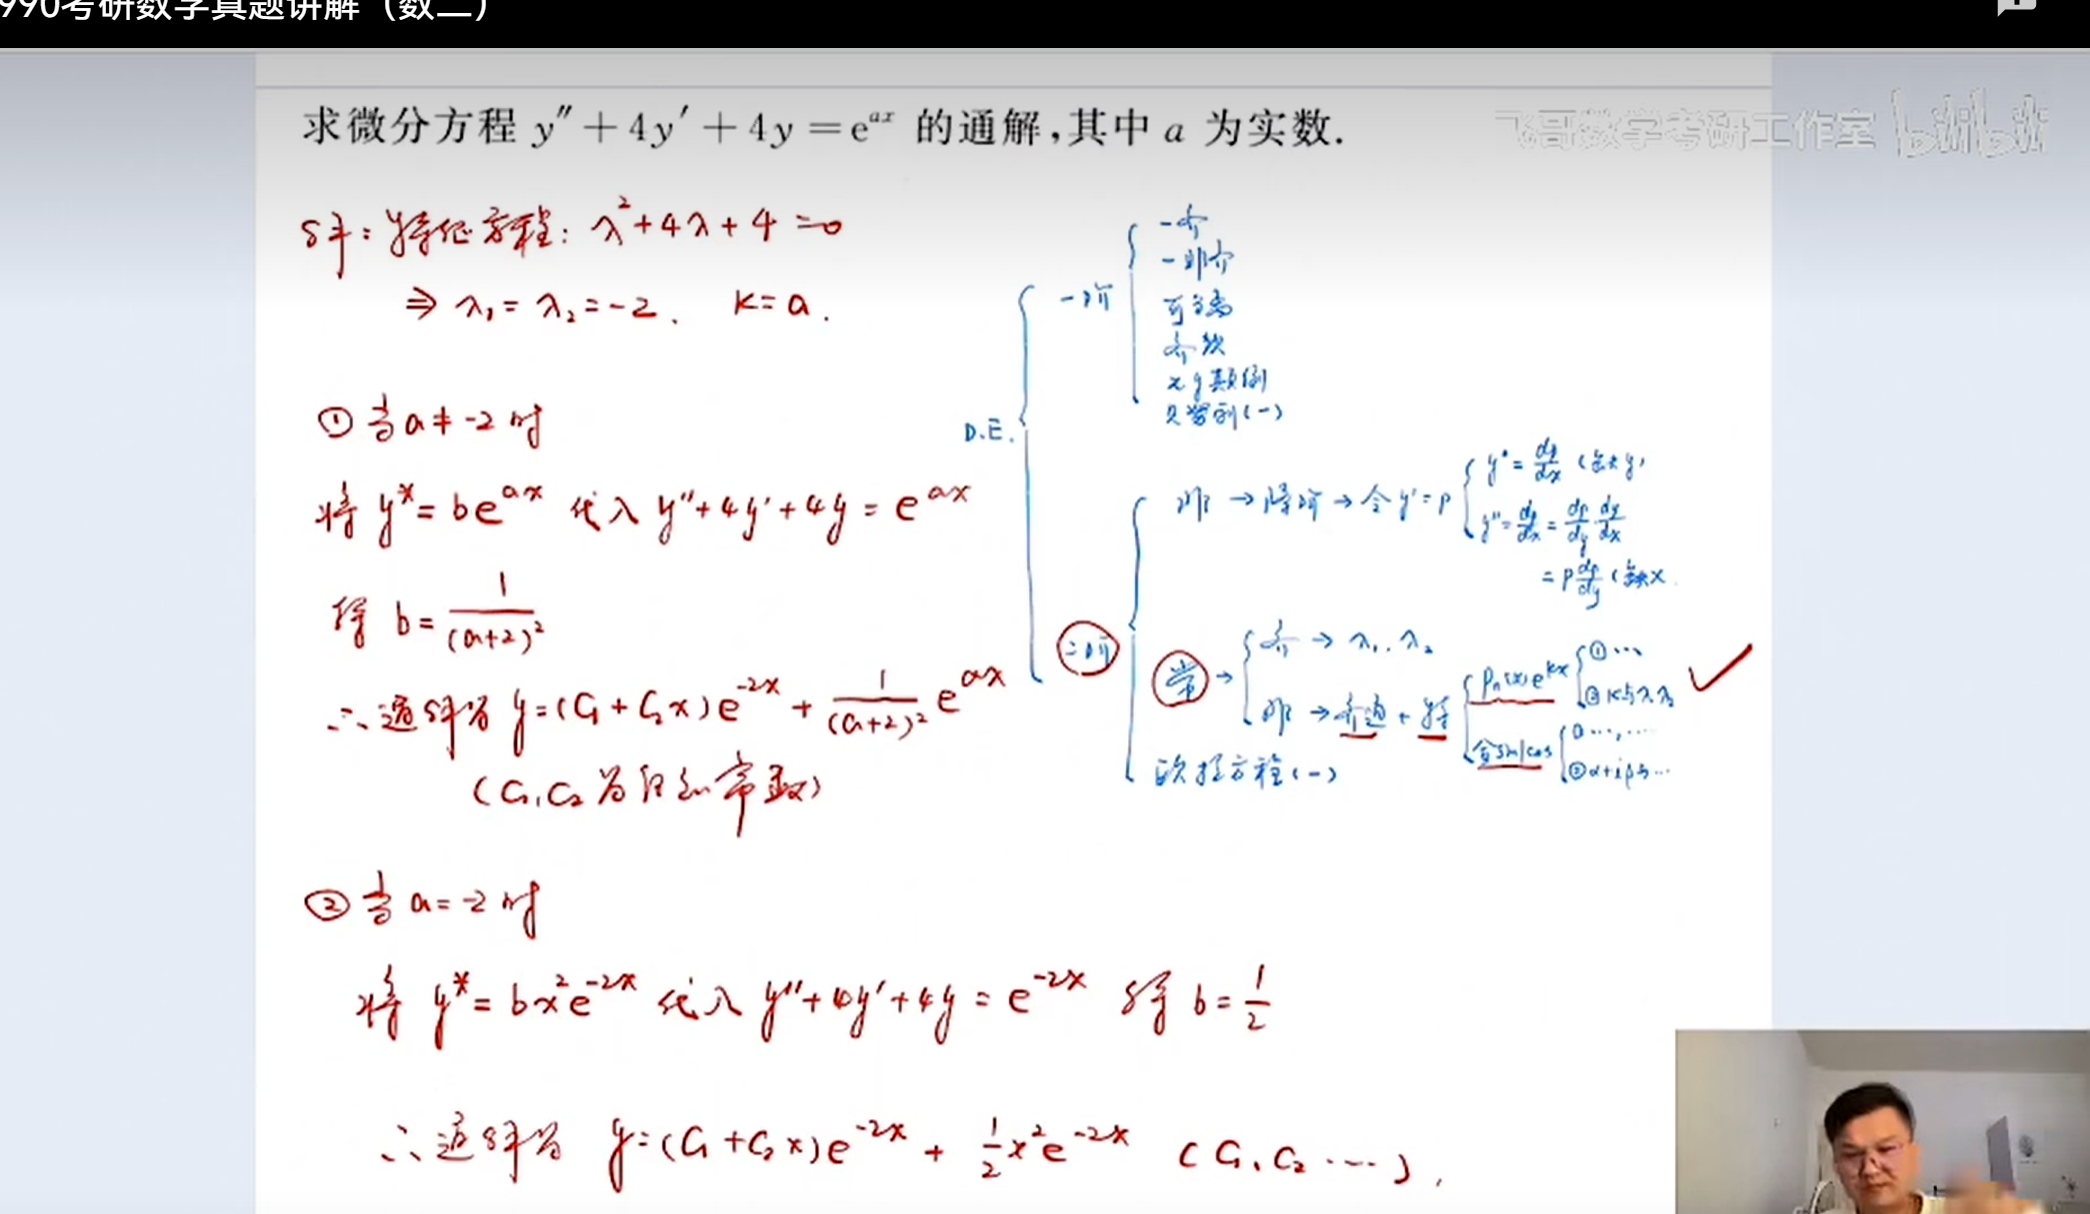 990考研数学真题讲解（数二）
飞哥数学考研工作室 bilibili
求微分方程 y″+4y′+4y=e^{ax} 的通解,其中 a 为实数.
解：特征方程：λ²+4λ+4=0
⇒ λ₁=λ₂=-2. K=a.
①当a≠-2时
将 y*=be^{ax} 代入 y″+4y′+4y=e^{ax}
得 b=1/(a+2)²
∴通解为 y=(C₁+C₂x)e^{-2x}+1/(a+2)² e^{ax}
(C₁,C₂为任意常数)
②当a=-2时
将 y*=bx²e^{-2x} 代入 y″+4y′+4y=e^{-2x} 得 b=1/2
∴通解为 y=(C₁+C₂x)e^{-2x}+1/2 x²e^{-2x} (C₁,C₂…).
D.E.
一阶
一齐
一非齐
可分离
齐次
xy颠倒
贝努利(一)
二阶
非→降阶→令y′=p
y″=dp/dx (缺y)
y″=dp/dx=dp/dy dy/dx
=p dp/dy (缺x
常→
齐→λ₁,λ₂
非→齐通+特
Pₙ(x)e^{kx}
①…
②K与λ₁λ₂
含sin/cos
①…,…
②α+iβ与…
欧拉方程(一)